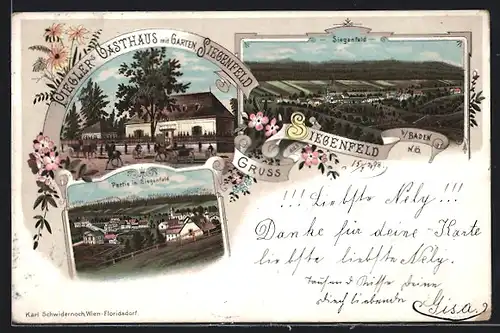 ZIEGLER'S GASTHAUS MIT GARTEN, SIEGENFELD
Siegenfeld
GRUSS
SIEGENFELD
b/BADEN
N.Ö.
Partie in Siegenfeld
!!! Liebste Nely !!!
Danke für deine Karte
liebste liebste Nely.
Tausend Küsse deine
dich liebende Gisa.
Karl Schwidernoch, Wien-Floridsdorf.